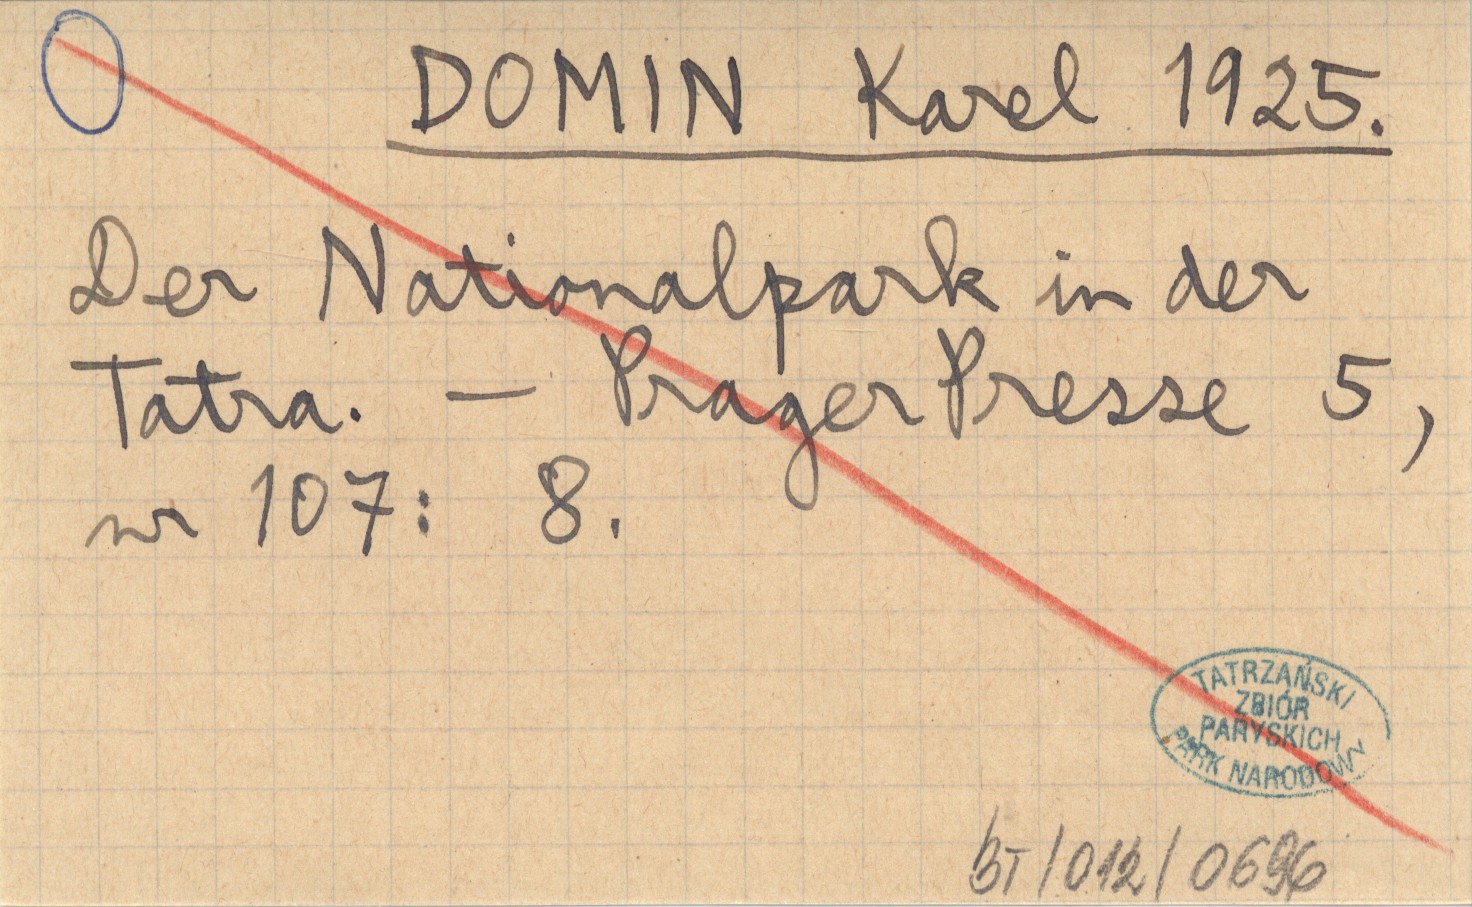 DOMIN Karel 1925.
Der Nationalpark in der
Tatra. — Prager Presse 5,
nr 107: 8.
TATRZAŃSKI
ZBIÓR
PARYSKICH
PARK NARODOWY
BT/012/0696